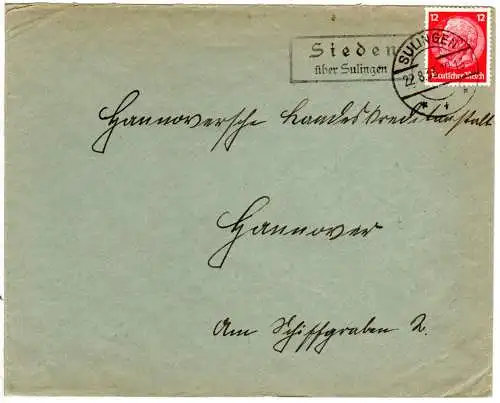 12 12
Deutsches Reich
SULINGEN
22.8.
Sieden
über Sulingen
Hannoversche Landeskreditanstalt
Hannover
Am Schiffgraben 2.